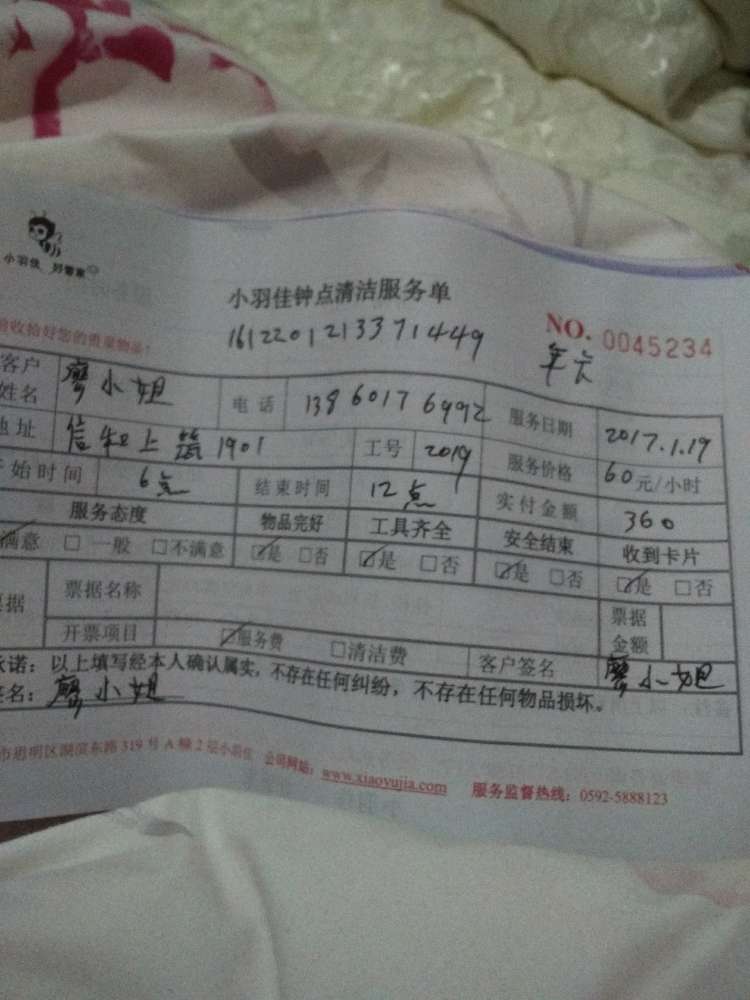 小羽佳 好管家
小羽佳钟点清洁服务单
验收恰好您的贵重物品!
1612201213371449
NO. 0045234
年卡
客户姓名 廖小姐 电话 13860176992 服务日期 2017.1.19
地址 信和上筑1901 工号 2019 服务价格 60元/小时
开始时间 6点 结束时间 12点 实付金额 360
服务态度 物品完好 工具齐全 安全结束 收到卡片
满意 □一般 □不满意 ☑是 □否 ☑是 □否 ☑是 □否 ☑是 □否
票据 票据名称 票据金额
开票项目 ☑服务费 □清洁费 客户签名 廖小姐
承诺:以上填写经本人确认属实,不存在任何纠纷,不存在任何物品损坏。
签名:廖小姐
市思明区湖滨东路319号A幢2层小羽佳 公司网站:www.xiaoyujia.com 服务监督热线:0592-5888123